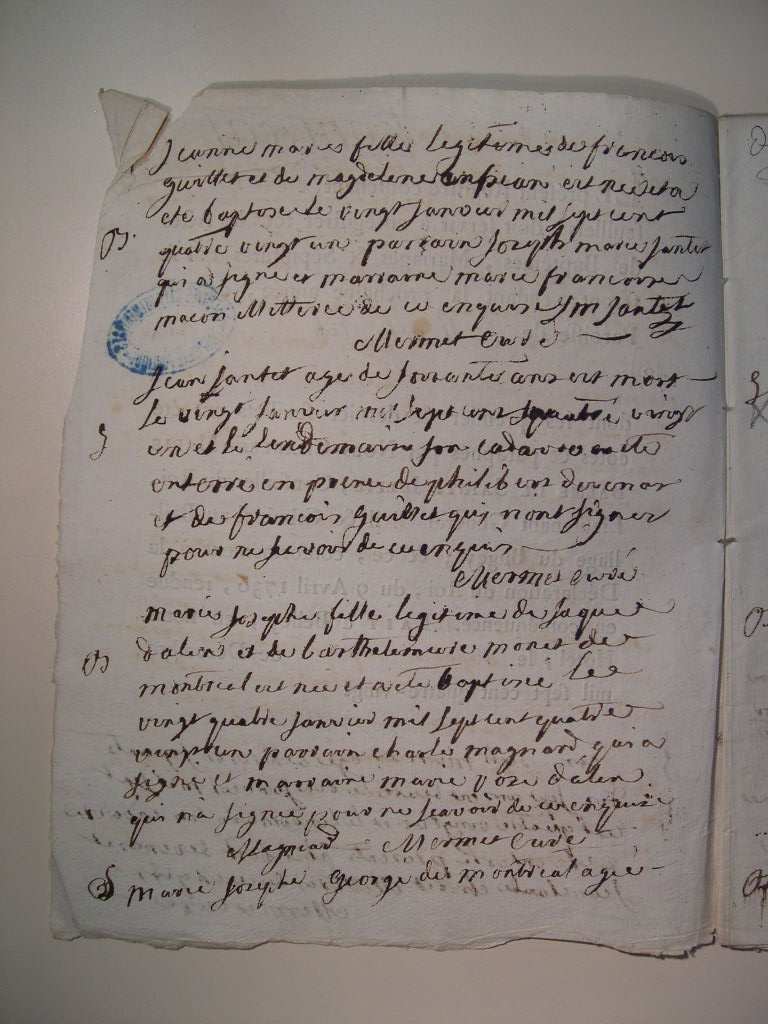 Jeanne marie fille legitime de francois
guillet et de magdelene ansian est née et a
eté baptosée le vingt Janvier mil sept cent
B. quatre vingt un parrain Joseph marie Jantet
qui a signé et marraine marie francoise
macon de ce enquise Jm Jantet
Mermet Curé
Jean Jantet agé de soixante ans est mort
Le vingt Janvier mil sept cent quatre vingt
un et le lendemain son cadavre a eté
enterré en presence de philibert
et de francois Guillet quy n'ont signer
pour ne scavoir de ce enquis
Mermet Curé
marie Josephe fille legitime de Jaque
B dalen et de barthelemiere monet de
montreal est née et a eté baptisée Le
vingt quatre Janvier mil sept cent quatre
vingt un parrain charle magnard qui a
signé et marraine marie dalen
qui n'a signée pour ne scavoir de ce enquise
Magniard Mermet Curé
S marie Josephe George de montreal agée